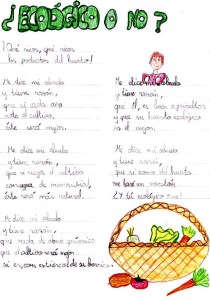 ¿ECOLÓGICO O NO?
¡Qué ricos, qué ricos
los productos del huerto!
Me dice mi abuelo
y tiene razón,
que si cada año
rota el cultivo,
éste será mejor.
Me dice mi abuelo
y tiene razón,
si mejor el cultivo
consegra
éste será más natural.
Me dice mi abuelo
y tiene razón,
que nada de abono químico
que el cultivo será mejor
si es con estiércol de su borrico.
Me dice mi abuelo
y tiene razón,
que él, es buen agricultor
y que su huerto ecológico
es el mejor.
Me dice mi abuelo
y tiene razón,
que si como del huerto
me haré un
¿Y tú ecológico eres?